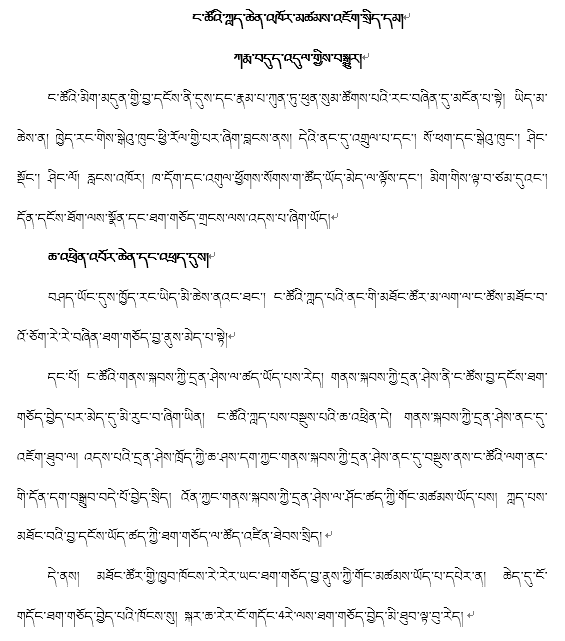 ང་ཚོའི་ཀླད་ཆེན་འཁོར་མཚམས་འཇོག་སྲིད་དམ།
ཀརྨ་བདུད་འདུལ་གྱིས་བསྒྱུར།
ང་ཚོའི་མིག་མདུན་གྱི་བྱ་དངོས་ནི་དུས་དང་རྣམ་པ་ཀུན་ཏུ་ཕུན་སུམ་ཚོགས་པའི་རང་བཞིན་དུ་མངོན་པ་སྟེ། ཡིད་མ་
ཆེས་ན། ཁྱེད་རང་གིས་སྒེའུ་ཁུང་ཕྱི་རོལ་གྱི་པར་ཞིག་བླངས་ནས། དེའི་ནང་དུ་འགྲུལ་པ་དང་། སོ་ཕག་དང་སྒེའུ་ཁུང་། ཤིང་
སྡོང་། ཤིང་ལོ། རླངས་འཁོར། ཁ་དོག་དང་འགུལ་ཕྱོགས་སོགས་ག་ཚོད་ཡོད་མེད་ལ་ལྟོས་དང་། མིག་གིས་ལྟ་བ་ཙམ་དུའང་།
དོན་དངོས་ཐོག་ལས་སྣོན་དང་ཐག་གཅོད་གྲངས་ལས་འདས་པ་ཞིག་ཡོད།
ཆ་འཕྲིན་འབོར་ཆེན་དང་འཕྲད་དུས།
བཤད་ཡོང་དུས་ཁྱོད་རང་ཡིད་མི་ཆེས་ནའང་ཐང་། ང་ཚོའི་ཀླད་པའི་ནང་གི་མཐོང་ཚོར་མ་ལག་ལ་ང་ཚོས་མཐོང་བ་
འོ་ཅོག་རེ་རེ་བཞིན་ཐག་གཅོད་བྱ་ནུས་མེད་པ་སྟེ།
དང་པོ། ང་ཚོའི་གནས་སྐབས་ཀྱི་དྲན་ཤེས་ལ་ཚད་ཡོད་པས་རེད། གནས་སྐབས་ཀྱི་དྲན་ཤེས་ནི་ང་ཚོས་བྱ་དངོས་ཐག་
གཅོད་བྱེད་པར་མེད་དུ་མི་རུང་བ་ཞིག་ཡིན། ང་ཚོའི་ཀླད་པས་བསྡུས་པའི་ཆ་འཕྲིན་དེ། གནས་སྐབས་ཀྱི་དྲན་ཤེས་ནང་དུ་
འཇོག་ཐུབ་ལ། འདས་པའི་དྲན་ཤེས་ཁྲོད་ཀྱི་ཆ་ཤས་དག་ཀྱང་གནས་སྐབས་ཀྱི་དྲན་ཤེས་ནང་དུ་བསྡུས་ནས་ང་ཚོའི་ལག་ནང་
གི་དོན་དག་བསྒྲུབ་བདེ་པོ་བྱེད་སྲིད། འོན་ཀྱང་གནས་སྐབས་ཀྱི་དྲན་ཤེས་ལ་ཤོང་ཚད་ཀྱི་གོང་མཚམས་ཡོད་པས། ཀླད་པས་
མཐོང་བའི་བྱ་དངོས་ཡོད་ཚད་ཀྱི་ཐག་གཅོད་ལ་ཚོད་འཛིན་ཐེབས་སྲིད།
དེ་ནས། མཐོང་ཚོར་གྱི་ཁྱབ་ཁོངས་རེ་རེར་ཡང་ཐག་གཅོད་བྱ་ནུས་ཀྱི་གོང་མཚམས་ཡོད་པ་དཔེར་ན། ཆེད་དུ་ངོ་
གདོང་ཐག་གཅོད་བྱེད་པའི་ཁོངས་སུ། སྐར་ཆ་རེར་ངོ་གདོང་4རེ་ལས་ཐག་གཅོད་བྱེད་མི་ཐུབ་ལྟ་བུ་རེད།